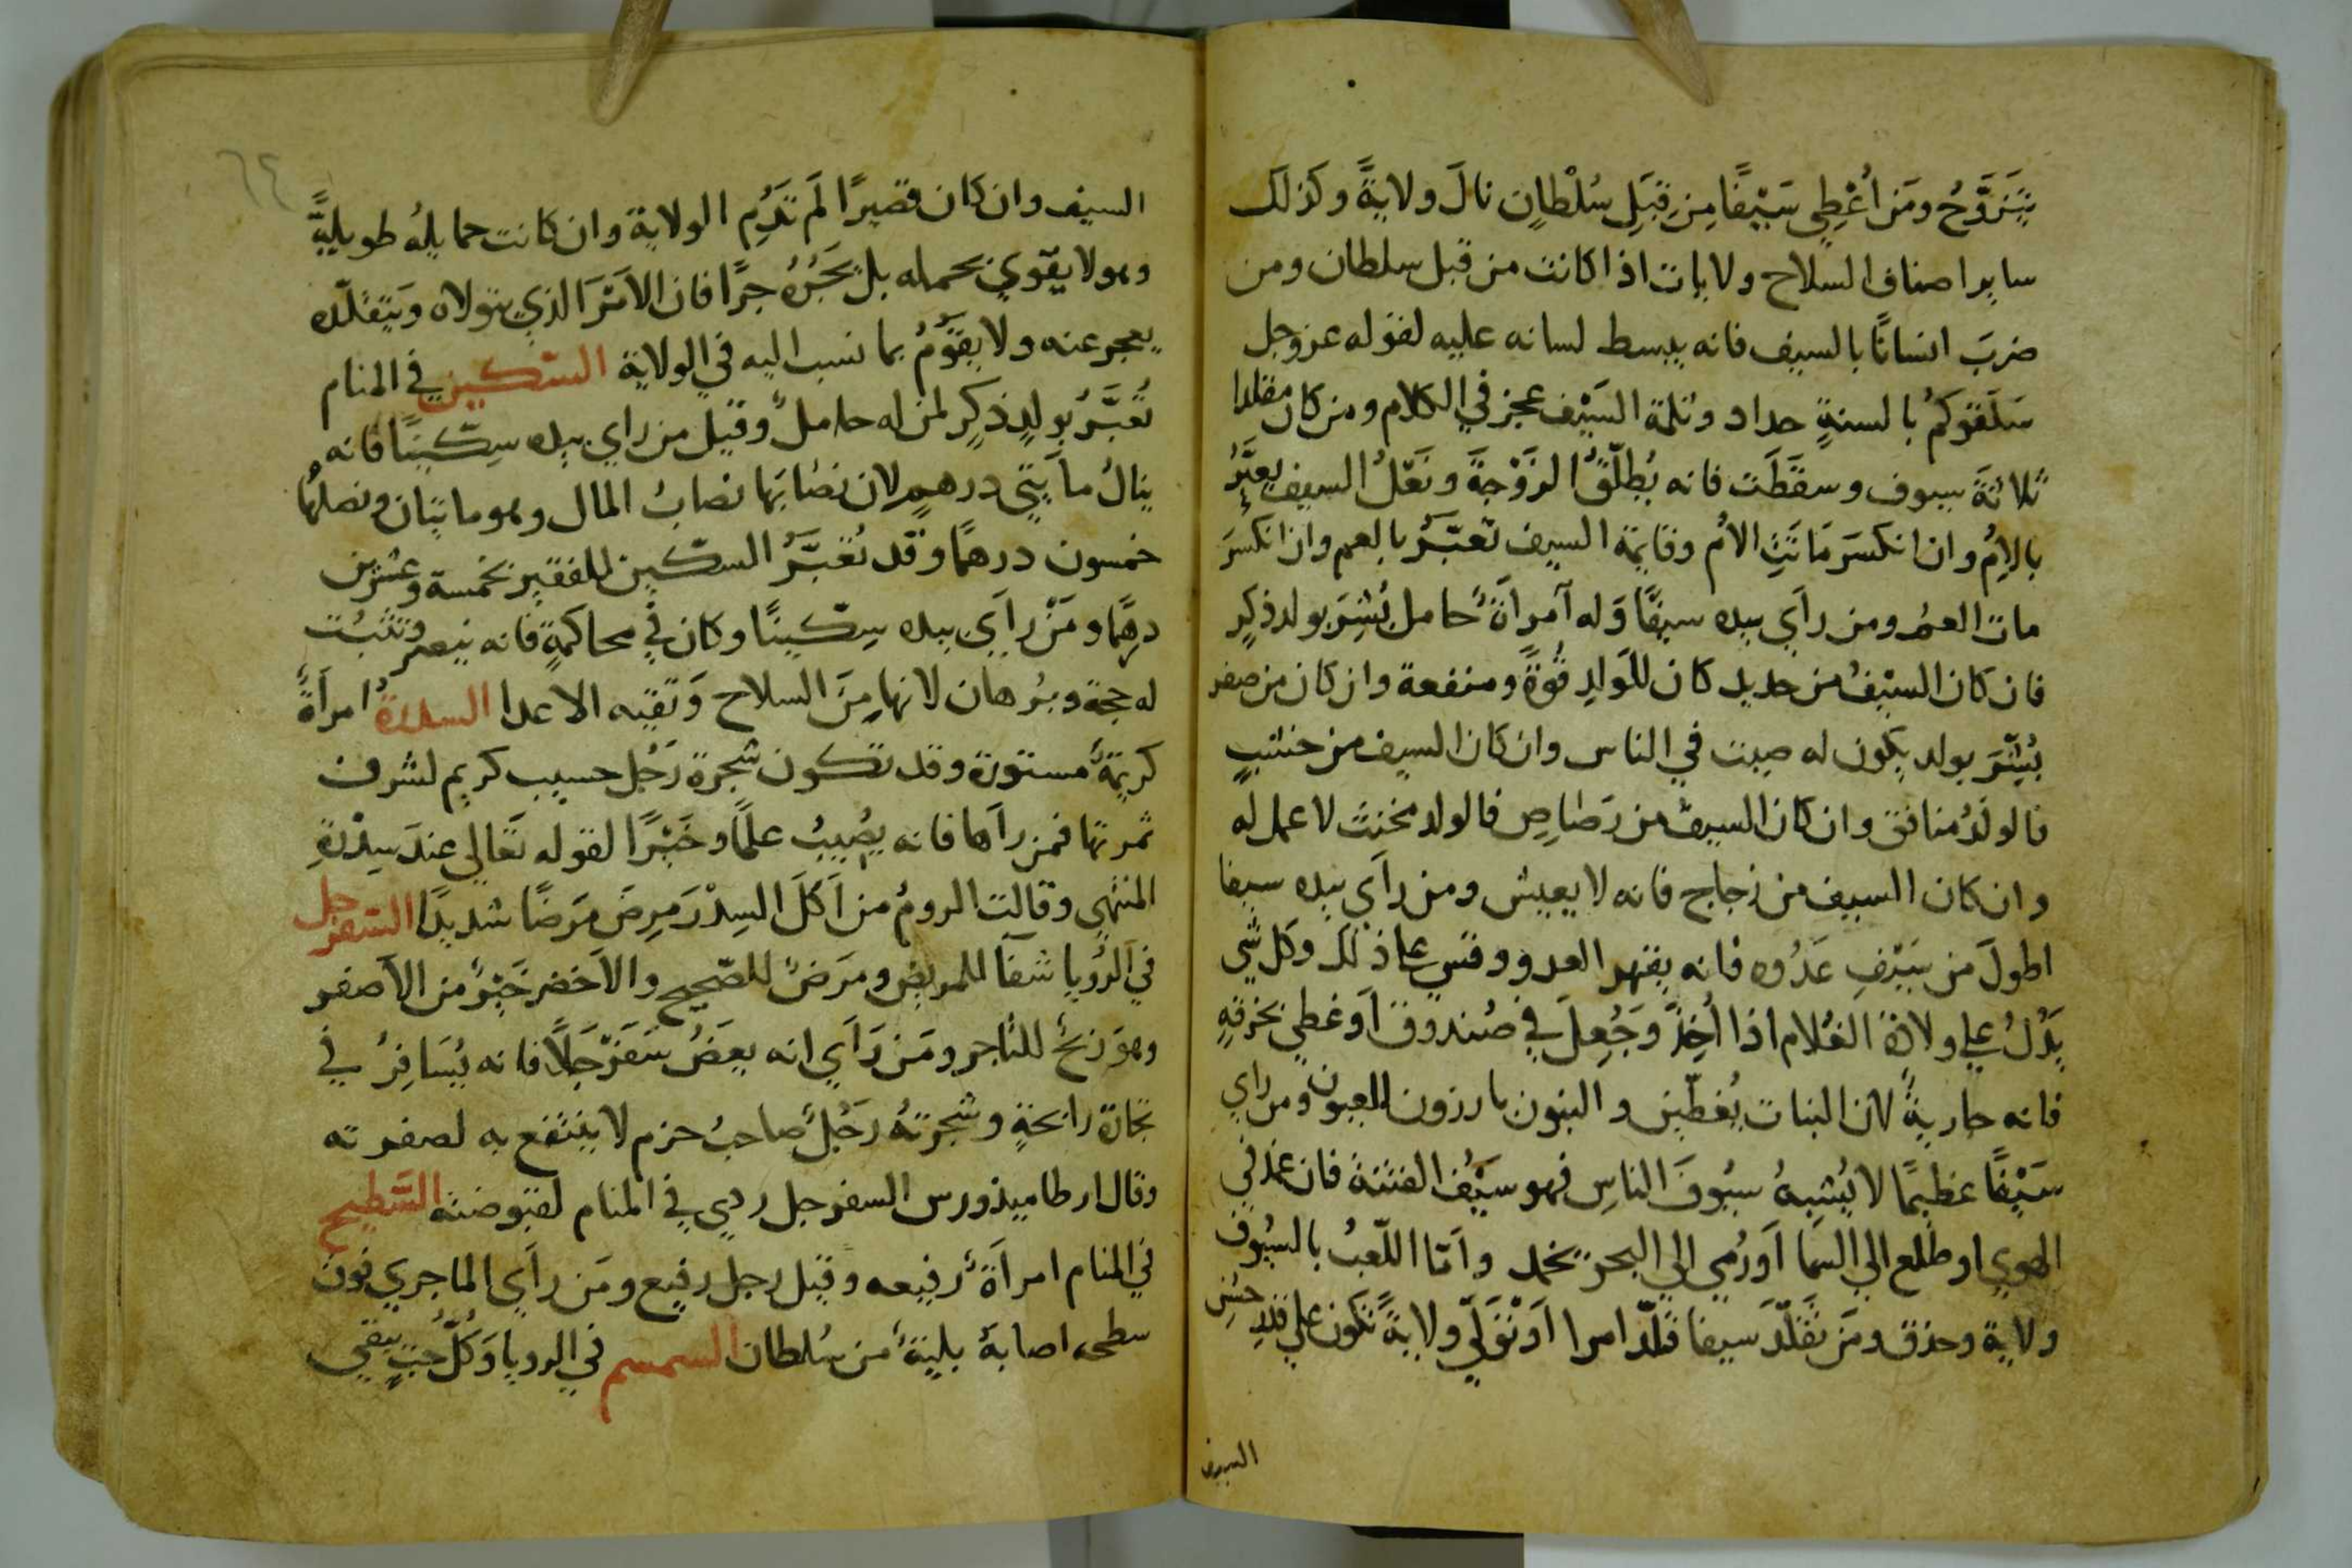 يَتَزَوَّجُ ومَن اُعْطِي سَيْفًا مِن قِبَلِ سُلْطانٍ نالَ ولايةً وكذلك
ساير اصناف السلاح ولايات اذا كانت من قبل سلطان ومن
ضربَ انسانًا بالسيف فانه يبسط لسانه عليه لقوله عز وجل
سَلَقوكم بالسنةٍ حداد وثلمة السَيْف عجز في الكلام ومن كان مقلدا
ثلاثةَ سيوف وسقَطَت فانه يُطلّقُ الزَوْجةَ ونَعْلُ السيف يعبَّرُ
بالاِمُ وان انكسرَ مَاتَتِ الاُم وقايمة السيف تعبّرُ بالعم وان انكسرَ
مات العمُ ومن راَي بيده سيفًا وَله آمراَةٌ حامل بُشِرَ بولد ذكرٍ
فان كان السيْفُ من حديد كان للوَلدِ قُوةً ومنفعة وان كان من صفر
بُشِّرَ بولد يكون له صيت في الناس وان كان السيف من خشبٍ
فالولدُ منافق وان كان السيفُ من رَصَاصٍ فالولد مخنث لا عمل له
وان كان السيف من زجاج فانه لا يعيش ومن راَي بيده سيفا
اطولَ من سَيْفِ عَدُوه فانه يقهر العدو وقس علي ذلك وكل شي
يَدُلُ علي ولادةَ الغُلام اذا اُخِذَ وَجُعِلَ في صُندوق اَو غطي بخرقةٍ
فانه جاريةٌ لان البنات يُغطّين والبنون بارزون للعيون ومن راي
سَيْفًا عظيمًا لا يُشبهُ سيُوفَ الناسِ فهو سيْفُ الفتنة فان غمد في
الهوي او طلع الي السَما اَو رُمي الي البحر تخمد واَمّا اللّعبُ بالسيُوف
ولاية وحذق ومَن تقَلّدَ سَيفا قلّد امرا اَو تَوَلّي ولايةً تكون علي قدرِ حُسْنِ
السيف
السيف وان كان قصيرًا لَم تَدُم الولاية وان كانت حمايلُه طويليةً
وهو لا يقوي بحمله بل يَجُرُهُ جرًا فان الاَمْرَ الذي يتولاه ويَتقلّده
يعجر عنه ولا يقوّمُ بما نسب اليه في الولاية السّكين في المنام
تُعبَّرُ بولدٍ ذكرٍ لمن له حاملٌ وقيل من راي بيده سِكّينًا فانه
ينالُ مأيتَي درهمٍ لان نصَابَها نصابُ المال وهو مايتان ونصلها
خمسون درهمًا وقد تُعَبَّرُ السكّين للفقير بخمسة وعشرين
درهمًا ومَنْ راَي بيده سِكّينًا وكان في محاكمةٍ فانه ينصر وتثبُت
له حجة وبُرهان لانها مِنَ السلاح وَتقيه الاعدا السدرةُ امراَةٌ
كريمةٌ مستورة وقد تكون شجرة رَجُل حسيب كريم لشرف
ثمرتها فمن راَها فانه يصُيبُ علمًا وخَيْرًا لقوله تعالي عندَ سِدْرةِ
المنتهي وقالت الرومُ من اَكَلَ السِدْرَ مرِضَ مَرَضًا شديدًا السفرجل
في الرُويا شفآ للمريض ومرَضٌ للصّحيح والاَخضر خَيْرٌ من الاَصفر
وهو رَبحٌ للتاجر ومَن رَاَي انه يعَضُ سَفَرْجَلًا فانه يُسَافِرُ في
تجارة رابحةٍ وشجرتهُ رَجُلٌ صاحبُ حزم لا ينتفع به لصفرته
وقال ارطاميذورس السفرجل ردي في المنام لقبوضته السَّطيح
في المنام امراَةٌ رفيعه وقيل رجل رفيع ومَن راَي الما جري فوق
سطحه اصابهُ بليةٌ من سُلطان السمسم في الرويا وَكُلُّ حبٍ يبقي